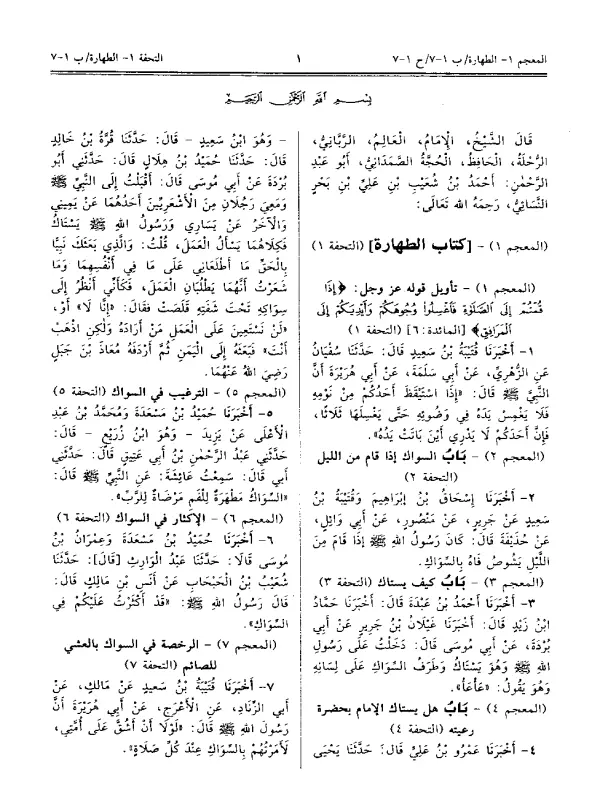 المعجم ١- الطهارة/ ب ١-٧/ ح ١-٧
١
التحفة ١- الطهارة/ ب ١-٧
بِسْمِ اللهِ الرَّحْمٰنِ الرَّحِيمِ
قَالَ الشَّيْخُ، الْإِمَامُ، الْعَالِمُ، الرَّبَّانِيُّ،
الرُّحْلَةُ، الْحَافِظُ، الْحُجَّةُ الصَّمَدَانِيُّ، أَبُو عَبْدِ
الرَّحْمٰنِ: أَحْمَدُ بْنُ شُعَيْبِ بْنِ عَلِيِّ بْنِ بَحْرٍ
النَّسَائِيُّ، رَحِمَهُ الله تَعَالَى:
(المعجم ١) - [كتاب الطهارة] (التحفة ١)
(المعجم ١) - تأويل قوله عز وجل: ﴿إِذَا
قُمْتُمْ إِلَى الصَّلَوٰةِ فَاغْسِلُوا وُجُوهَكُمْ وَأَيْدِيَكُمْ إِلَى
الْمَرَافِقِ﴾ [المائدة:٦] (التحفة ١)
١- أَخْبَرَنَا قُتَيْبَةُ بْنُ سَعِيدٍ قَالَ: حَدَّثَنَا سُفْيَانُ
عَنِ الزُّهْرِيِّ، عَنْ أَبِي سَلَمَةَ، عَنْ أَبِي هُرَيْرَةَ أَنَّ
النَّبِيَّ ﷺ قَالَ: «إِذَا اسْتَيْقَظَ أَحَدُكُمْ مِنْ نَوْمِهِ
فَلَا يَغْمِسْ يَدَهُ فِي وَضُوئِهِ حَتَّى يَغْسِلَهَا ثَلَاثًا،
فَإِنَّ أَحَدَكُمْ لَا يَدْرِي أَيْنَ بَاتَتْ يَدُهُ».
(المعجم ٢) - بَابُ السواك إذا قام من الليل
(التحفة ٢)
٢- أَخْبَرَنَا إِسْحَاقُ بْنُ إِبْرَاهِيمَ وَقُتَيْبَةُ بْنُ
سَعِيدٍ عَنْ جَرِيرٍ، عَنْ مَنْصُورٍ، عَنْ أَبِي وَائِلٍ،
عَنْ حُذَيْفَةَ قَالَ: كَانَ رَسُولُ اللهِ ﷺ إِذَا قَامَ مِنَ
اللَّيْلِ يَشُوصُ فَاهُ بِالسِّوَاكِ.
(المعجم ٣) - بَابُ كيف يستاك (التحفة ٣)
٣- أَخْبَرَنَا أَحْمَدُ بْنُ عَبْدَةَ قَالَ: أَخْبَرَنَا حَمَّادُ
ابْنُ زَيْدٍ قَالَ: أَخْبَرَنَا غَيْلَانُ بْنُ جَرِيرٍ عَنْ أَبِي
بُرْدَةَ، عَنْ أَبِي مُوسَى قَالَ: دَخَلْتُ عَلَى رَسُولِ
اللهِ ﷺ وَهُوَ يَسْتَاكُ وَطَرَفُ السِّوَاكِ عَلَى لِسَانِهِ
وَهُوَ يَقُولُ: «عَأْعَأْ».
(المعجم ٤) - بَابُ هل يستاك الإمام بحضرة
رعيته (التحفة ٤)
٤- أَخْبَرَنَا عَمْرُو بْنُ عَلِيٍّ قَالَ: حَدَّثَنَا يَحْيَى
- وَهُوَ ابْنُ سَعِيدٍ - قَالَ: حَدَّثَنَا قُرَّةُ بْنُ خَالِدٍ
قَالَ: حَدَّثَنَا حُمَيْدُ بْنُ هِلَالٍ قَالَ: حَدَّثَنِي أَبُو
بُرْدَةَ عَنْ أَبِي مُوسَى قَالَ: أَقْبَلْتُ إِلَى النَّبِيِّ ﷺ
وَمَعِيَ رَجُلَانِ مِنَ الْأَشْعَرِيِّينَ أَحَدُهُمَا عَنْ يَمِينِي
وَالْآخَرُ عَنْ يَسَارِي وَرَسُولُ اللهِ ﷺ يَسْتَاكُ
فَكِلَاهُمَا يَسْأَلُ الْعَمَلَ، قُلْتُ: وَالَّذِي بَعَثَكَ نَبِيًّا
بِالْحَقِّ مَا أَطْلَعَانِي عَلَى مَا فِي أَنْفُسِهِمَا وَمَا
شَعَرْتُ أَنَّهُمَا يَطْلُبَانِ الْعَمَلَ، فَكَأَنِّي أَنْظُرُ إِلَى
سِوَاكِهِ تَحْتَ شَفَتِهِ قَلَصَتْ فَقَالَ: «إِنَّا لَا» أَوْ،
«لَنْ نَسْتَعِينَ عَلَى الْعَمَلِ مَنْ أَرَادَهُ وَلٰكِنِ اذْهَبْ
أَنْتَ» فَبَعَثَهُ إِلَى الْيَمَنِ ثُمَّ أَرْدَفَهُ مُعَاذَ بْنَ جَبَلٍ
رَضِيَ اللهُ عَنْهُمَا.
(المعجم ٥) - الترغيب في السواك (التحفة ٥)
٥- أَخْبَرَنَا حُمَيْدُ بْنُ مَسْعَدَةَ وَمُحَمَّدُ بْنُ عَبْدِ
الْأَعْلَى عَنْ يَزِيدَ - وَهُوَ ابْنُ زُرَيْعٍ - قَالَ:
حَدَّثَنِي عَبْدُ الرَّحْمٰنِ بْنُ أَبِي عَتِيقٍ قَالَ: حَدَّثَنِي
أَبِي قَالَ: سَمِعْتُ عَائِشَةَ: عَنِ النَّبِيِّ ﷺ قَالَ:
«السِّوَاكُ مَطْهَرَةٌ لِلْفَمِ مَرْضَاةٌ لِلرَّبِّ».
(المعجم ٦) - الإكثار في السواك (التحفة ٦)
٦- أَخْبَرَنَا حُمَيْدُ بْنُ مَسْعَدَةَ وَعِمْرَانُ بْنُ
مُوسَى قَالَا: حَدَّثَنَا عَبْدُ الْوَارِثِ [قَالَ]: حَدَّثَنَا
شُعَيْبُ بْنُ الْحَبْحَابِ عَنْ أَنَسِ بْنِ مَالِكٍ قَالَ:
قَالَ رَسُولُ اللهِ ﷺ: «قَدْ أَكْثَرْتُ عَلَيْكُمْ فِي
السِّوَاكِ».
(المعجم ٧) - الرخصة في السواك بالعشي
للصائم (التحفة ٧)
٧- أَخْبَرَنَا قُتَيْبَةُ بْنُ سَعِيدٍ عَنْ مَالِكٍ، عَنْ
أَبِي الزِّنَادِ، عَنِ الْأَعْرَجِ، عَنْ أَبِي هُرَيْرَةَ أَنَّ
رَسُولَ اللهِ ﷺ قَالَ: «لَوْلَا أَنْ أَشُقَّ عَلَى أُمَّتِي،
لَأَمَرْتُهُمْ بِالسِّوَاكِ عِنْدَ كُلِّ صَلَاةٍ».